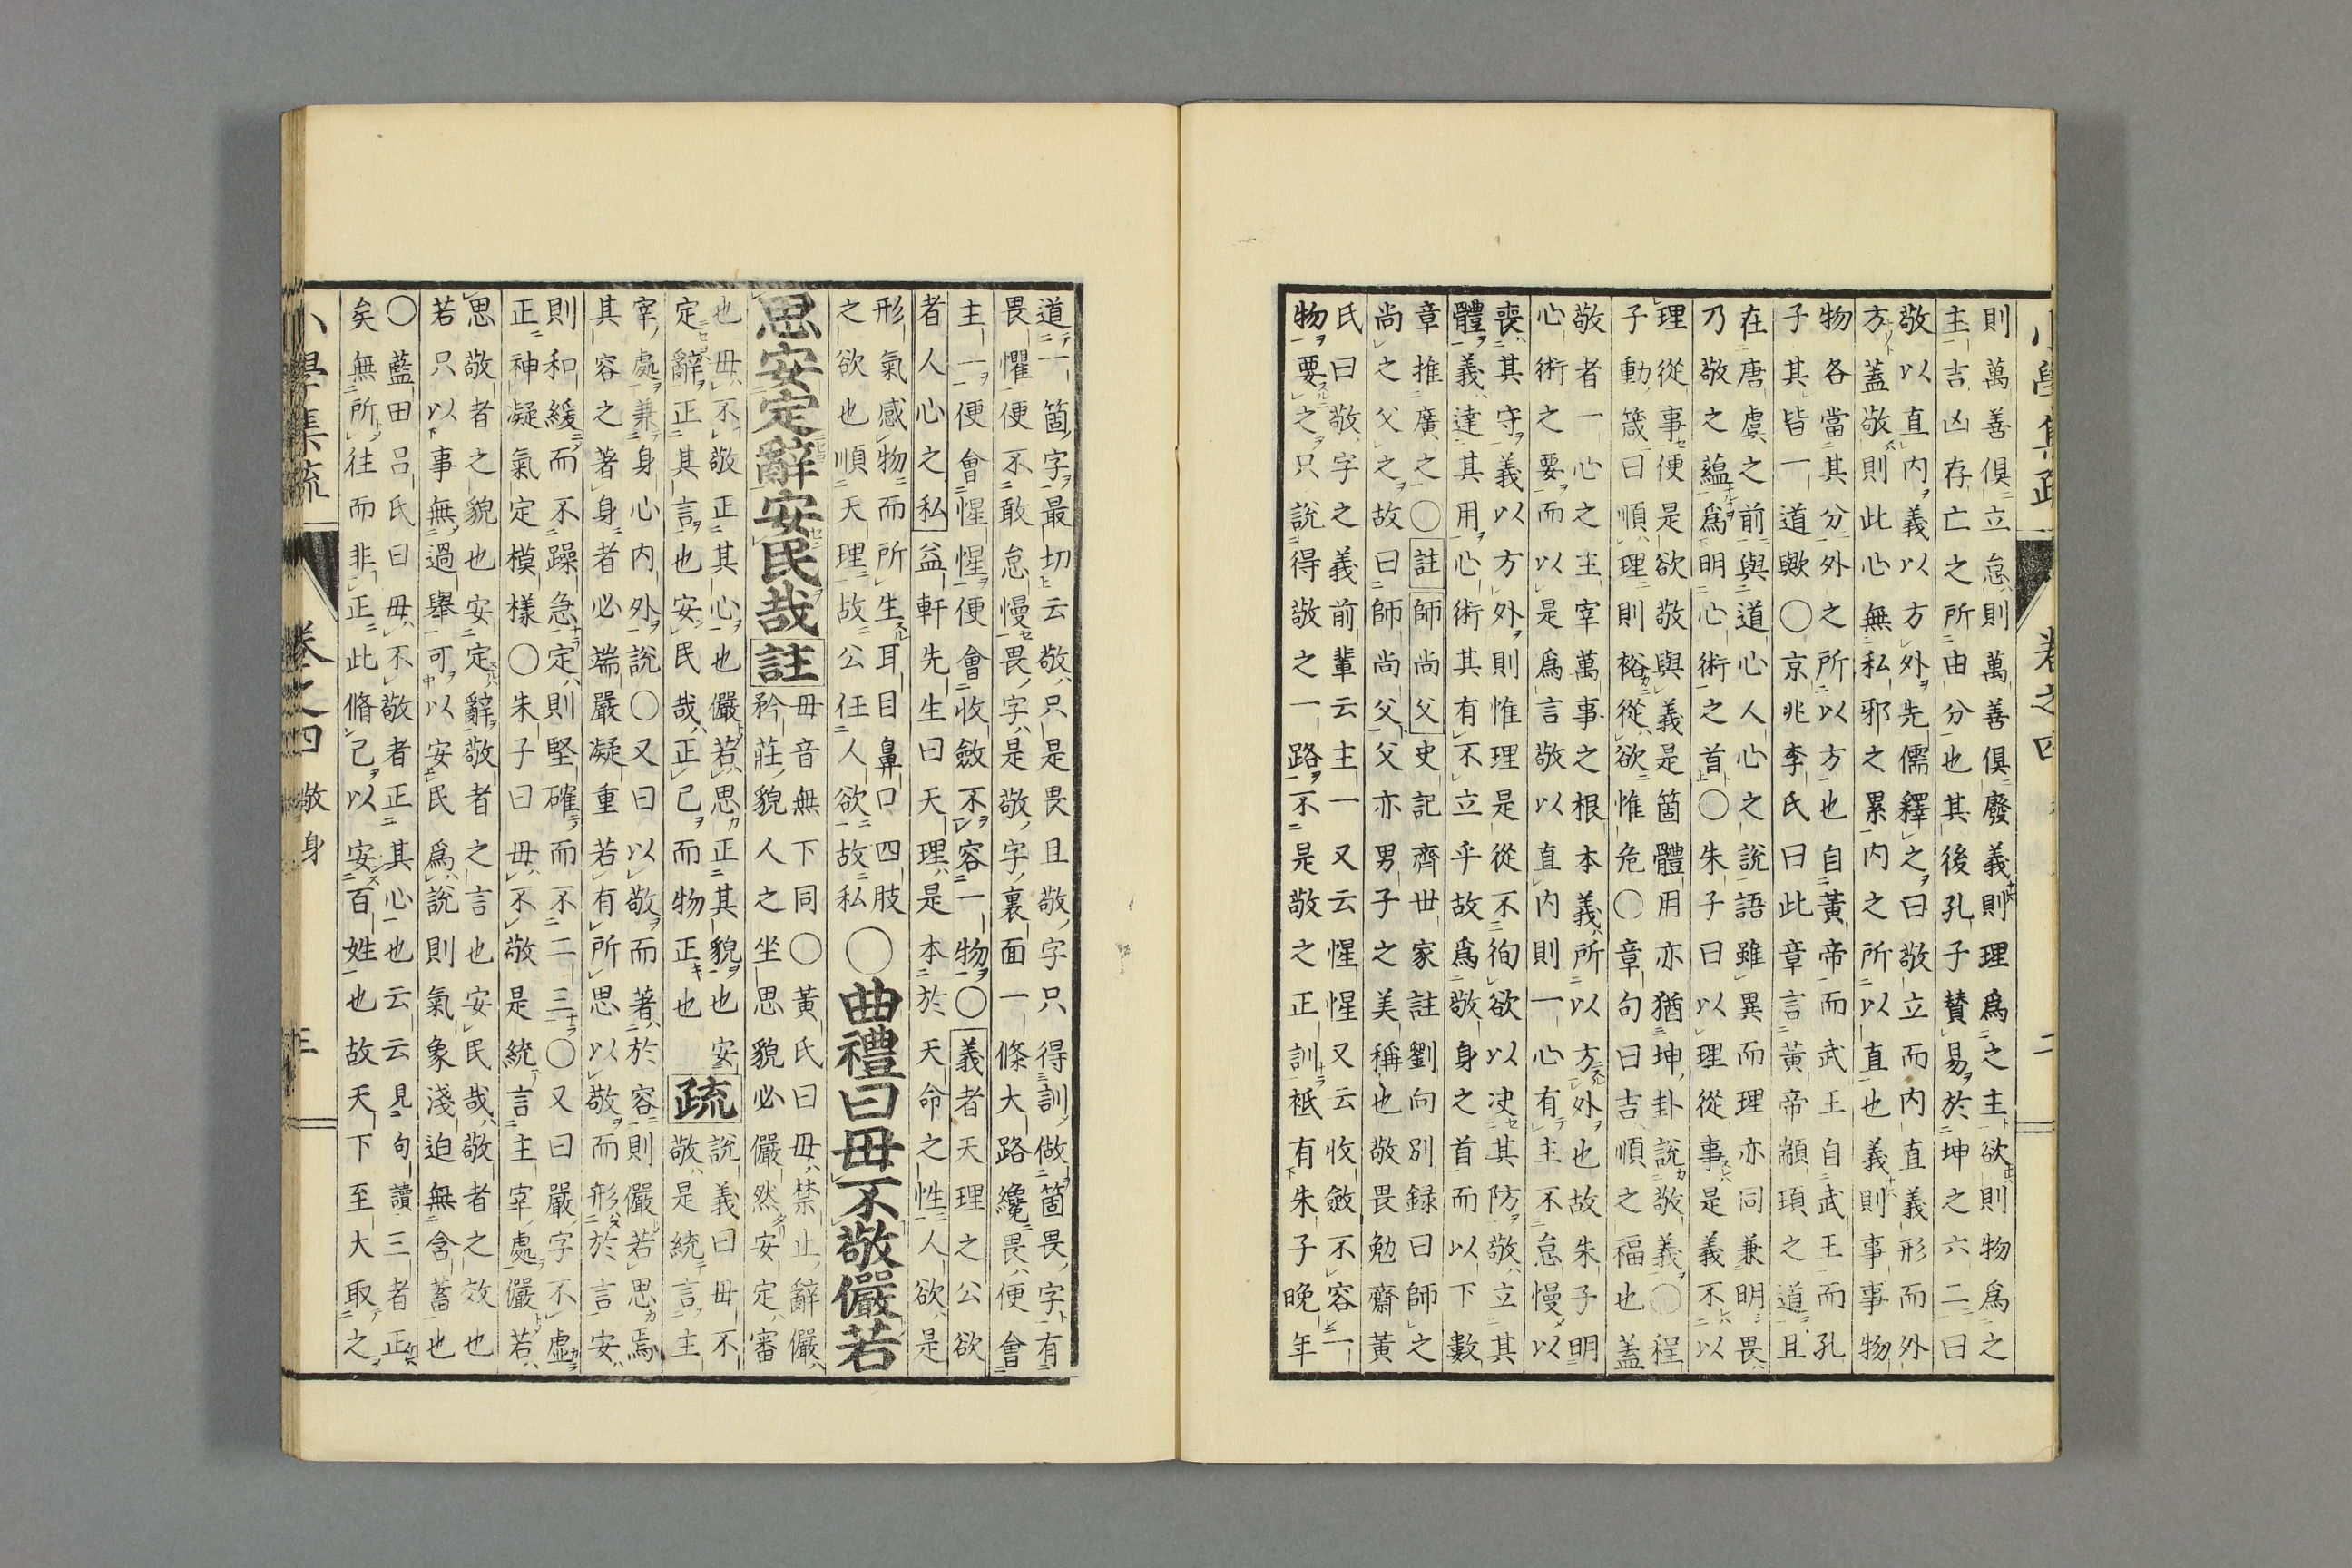 小學集疏 卷之四 二
則萬善俱立怠則萬善俱廢義則理爲之主欲則物爲之
主吉凶存亡之所由分也其後孔子賛易於坤之六二曰
敬以直内義以方外先儒釋之曰敬立而内直義形而外
方蓋敬則此心無私邪之累内之所以直也義則事事物
物各當其分外之所以方也自黄帝而武王自武王而孔
子其皆一道歟○京兆李氏曰此章言黃帝顓頊之道且
在唐虞之前與道心人心之說語雖異而理亦同兼明畏
乃敬之蘊爲明心術之首○朱子曰以理從事是義不以
理從事便是欲敬與義是箇體用亦猶坤卦說敬義○程
子動箴曰順理則裕從欲惟危○章句曰吉順之福也蓋
敬者一心之主宰萬事之根本義所以方外也故朱子明
心術之要而以是爲言敬以直内則一心有主不怠慢以
喪其守義以方外則惟理是從不徇欲以决其防敬立其
體義達其用心術其有不立乎故爲敬身之首而以下數
章推廣之○註師尚父史記齊世家註劉向別録曰師之
尚之父之故曰師尚父父亦男子之美稱也敬畏勉齋黄
氏曰敬字之義前輩云主一又云惺惺又云收斂不容一
物要之只說得敬之一路不是敬之正訓袛有朱子晚年
道一箇字最切云敬只是畏且敬字只得訓做箇畏字有
畏懼便不敢怠慢畏字是敬字裏面一條大路纔畏便會
主一便會惺惺便會收斂不容一物○義者天理之公欲
者人心之私益軒先生曰天理是本於天命之性人欲是
形氣感物而所生耳目鼻口四肢
之欲也順天理故公任人欲故私
○曲禮曰毋不敬儼若
思安定辭安民哉註
毋音無下同○黃氏曰毋禁止辭儼
矜莊貌人之坐思貌必儼然安定審
也毋不敬正其心也儼若思正其貌也安
定辭正其言也安民哉正己而物正也
疏
說義曰毋不
敬是統言主
宰處兼身心内外說○又曰以敬而著於容則儼若思焉
其容之著身者必端嚴凝重若有所思以敬而形於言安
則和緩而不躁急定則堅確而不二三○又曰嚴字不虚
正神凝氣定模樣○朱子曰毋不敬是統言主宰處儼若
思敬者之貌也安定辭敬者之言也安民哉敬者之效也
若只以事無過舉可以安民爲說則氣象淺迫無含蓄也
○藍田呂氏曰毋不敬者正其心也云云見句讀三者正
矣無所往而非正此脩己以安百姓也故天下至大取之
小學集疏 卷之四 敬身 三